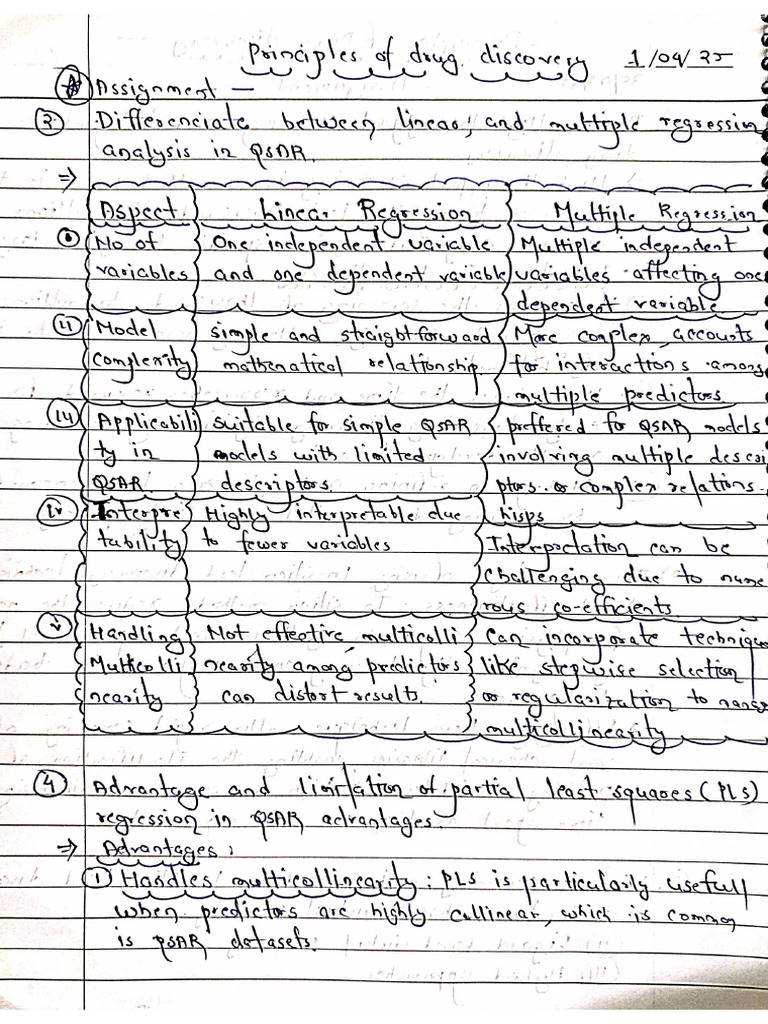 Principles of drug discovery 1/04/25
Assignment —
3. Differenciate between linear, and multiple regression
analysis in QSAR.
⇒
Aspect Linear Regression Multiple Regression
i No of One independent variable Multiple independent
variables and one dependent variable variables affecting one
dependent variable
ii Model simple and straightforward More complex, accounts
complexity mathematical relationship. for interactions among
multiple predictors
iii Applicabili suitable for simple QSAR preffered for QSAR models
ty in models with limited involving multiple descri
QSAR descriptors. ptors or complex relations.
iv Interpre Highly interpretable due hisps
tability to fewer variables Interpretation can be
challenging due to nume
rous co-efficients
v Handling Not effective multicolli Can incorporate technique
Multicolli nearity among predictors like stepwise selection
nearity can distort results. or regularization to
multicollinearity
4 Advantage and limitation of partial least squares (PLS)
regression in QSAR advantages.
⇒ Advantages :
1 Handles multicollinearity : PLS is particularly usefull
when predictors are highly collinear, which is common
is QSAR datasets.